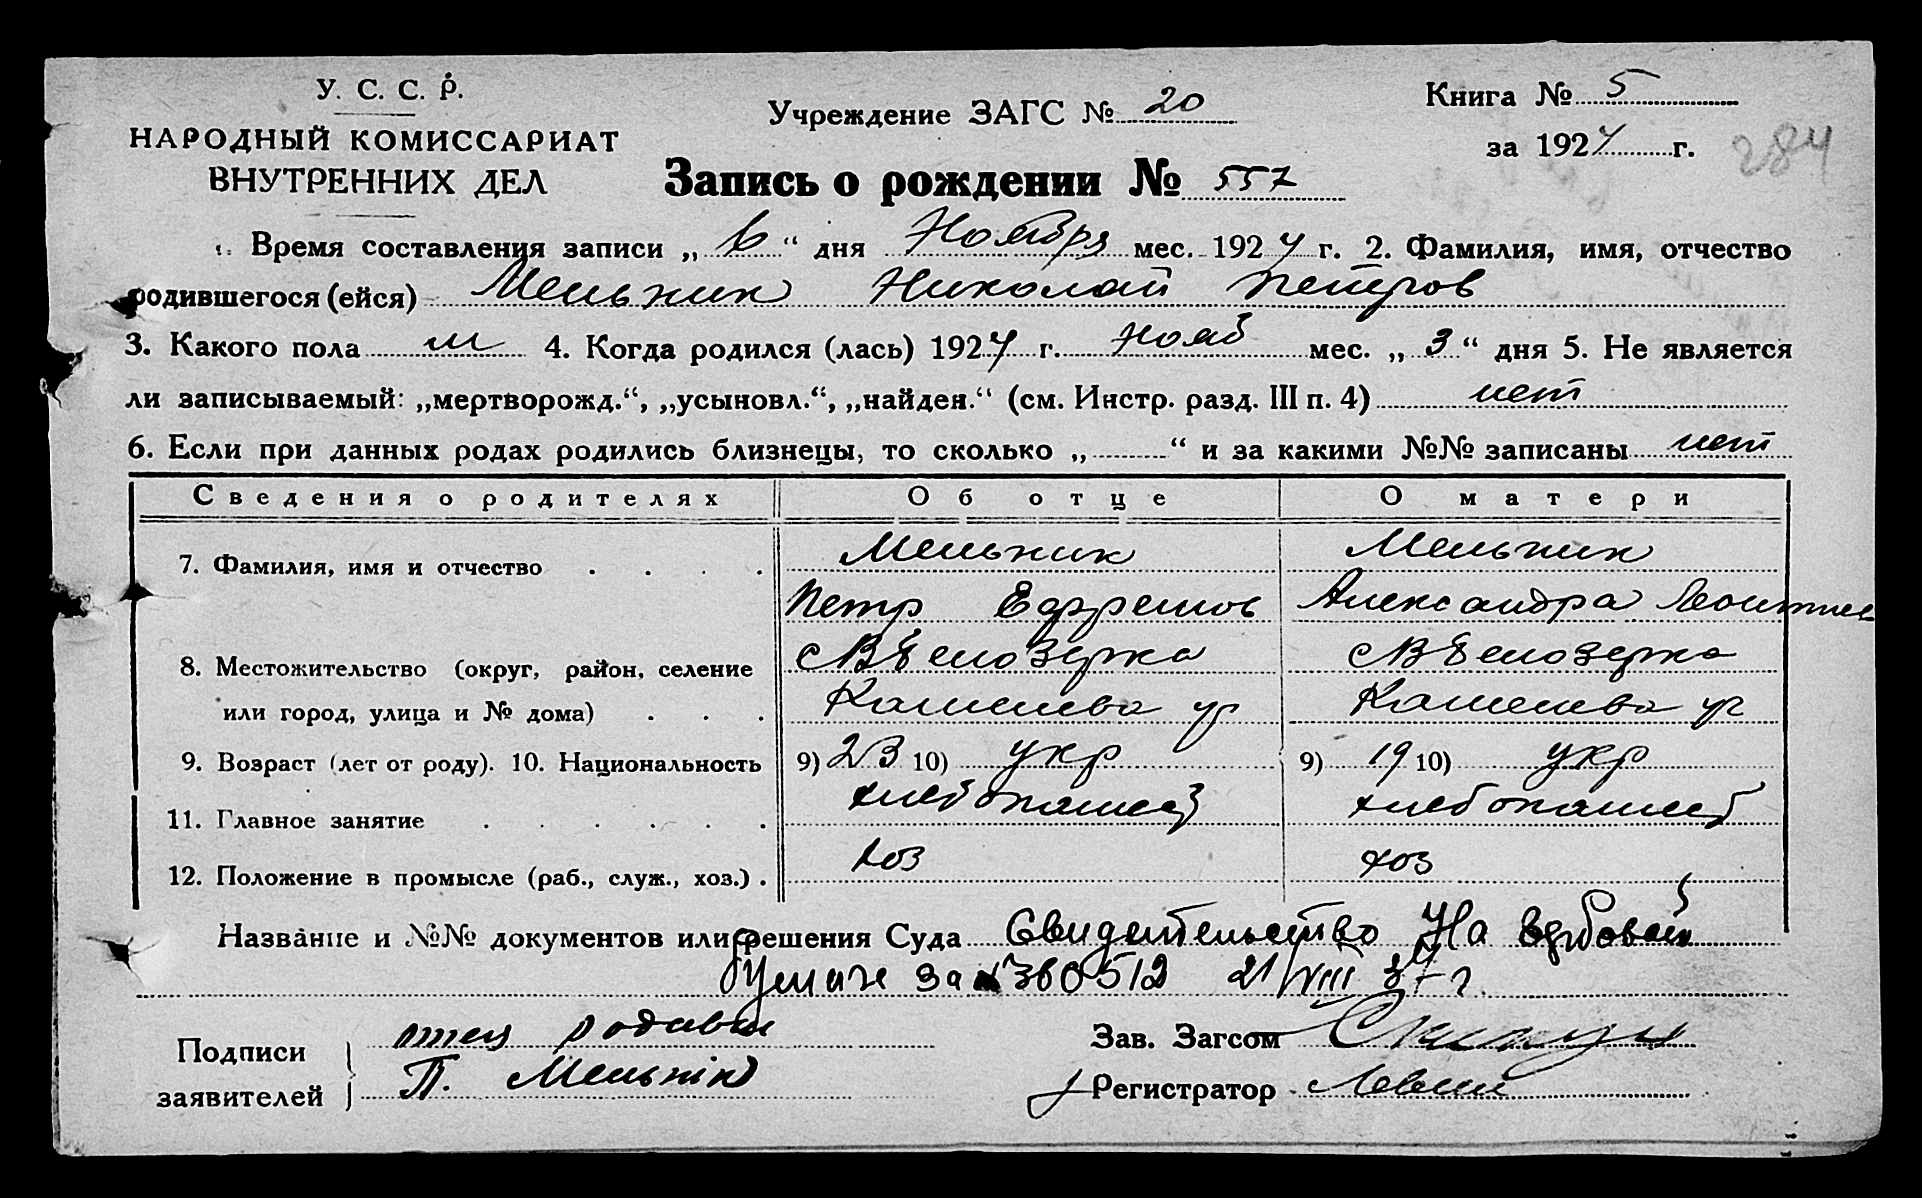 У. С. С. Р.
НАРОДНЫЙ КОМИССАРИАТ
ВНУТРЕННИХ ДЕЛ
Учреждение ЗАГС № 20
Книга № 5
за 1924 г.
284
Запись о рождении № 557
Время составления записи „ 6 “ дня Ноября мес. 1924 г. 2. Фамилия, имя, отчество
родившегося (ейся) Мельник Николай Петров
3. Какого пола м 4. Когда родился (лась) 1924 г. нояб мес. „ 3 “ дня 5. Не является
ли записываемый: „мертворожд.“, „усыновл.“, „найден.“ (см. Инстр. разд. III п. 4) нет
6. Если при данных родах родились близнецы, то сколько „ “ и за какими №№ записаны нет
Сведения о родителях Об отце О матери
7. Фамилия, имя и отчество Мельник Мельник
Петр Ефремов Александра Леонтьев
8. Местожительство (округ, район, селение сВБелозерка сВБелозерка
или город, улица и № дома)
9. Возраст (лет от роду). 10. Национальность 9) 23 10) укр 9) 19 10) укр
11. Главное занятие хлебопашец хлебопашец
12. Положение в промысле (раб., служ., хоз.) хоз хоз
Название и №№ документов или решения Суда Свидетельство На гербовой
бумаге за 360512 21/VIII 37 г.
Подписи
заявителей
отец
П. Мельнік
Зав. Загсом
Регистратор